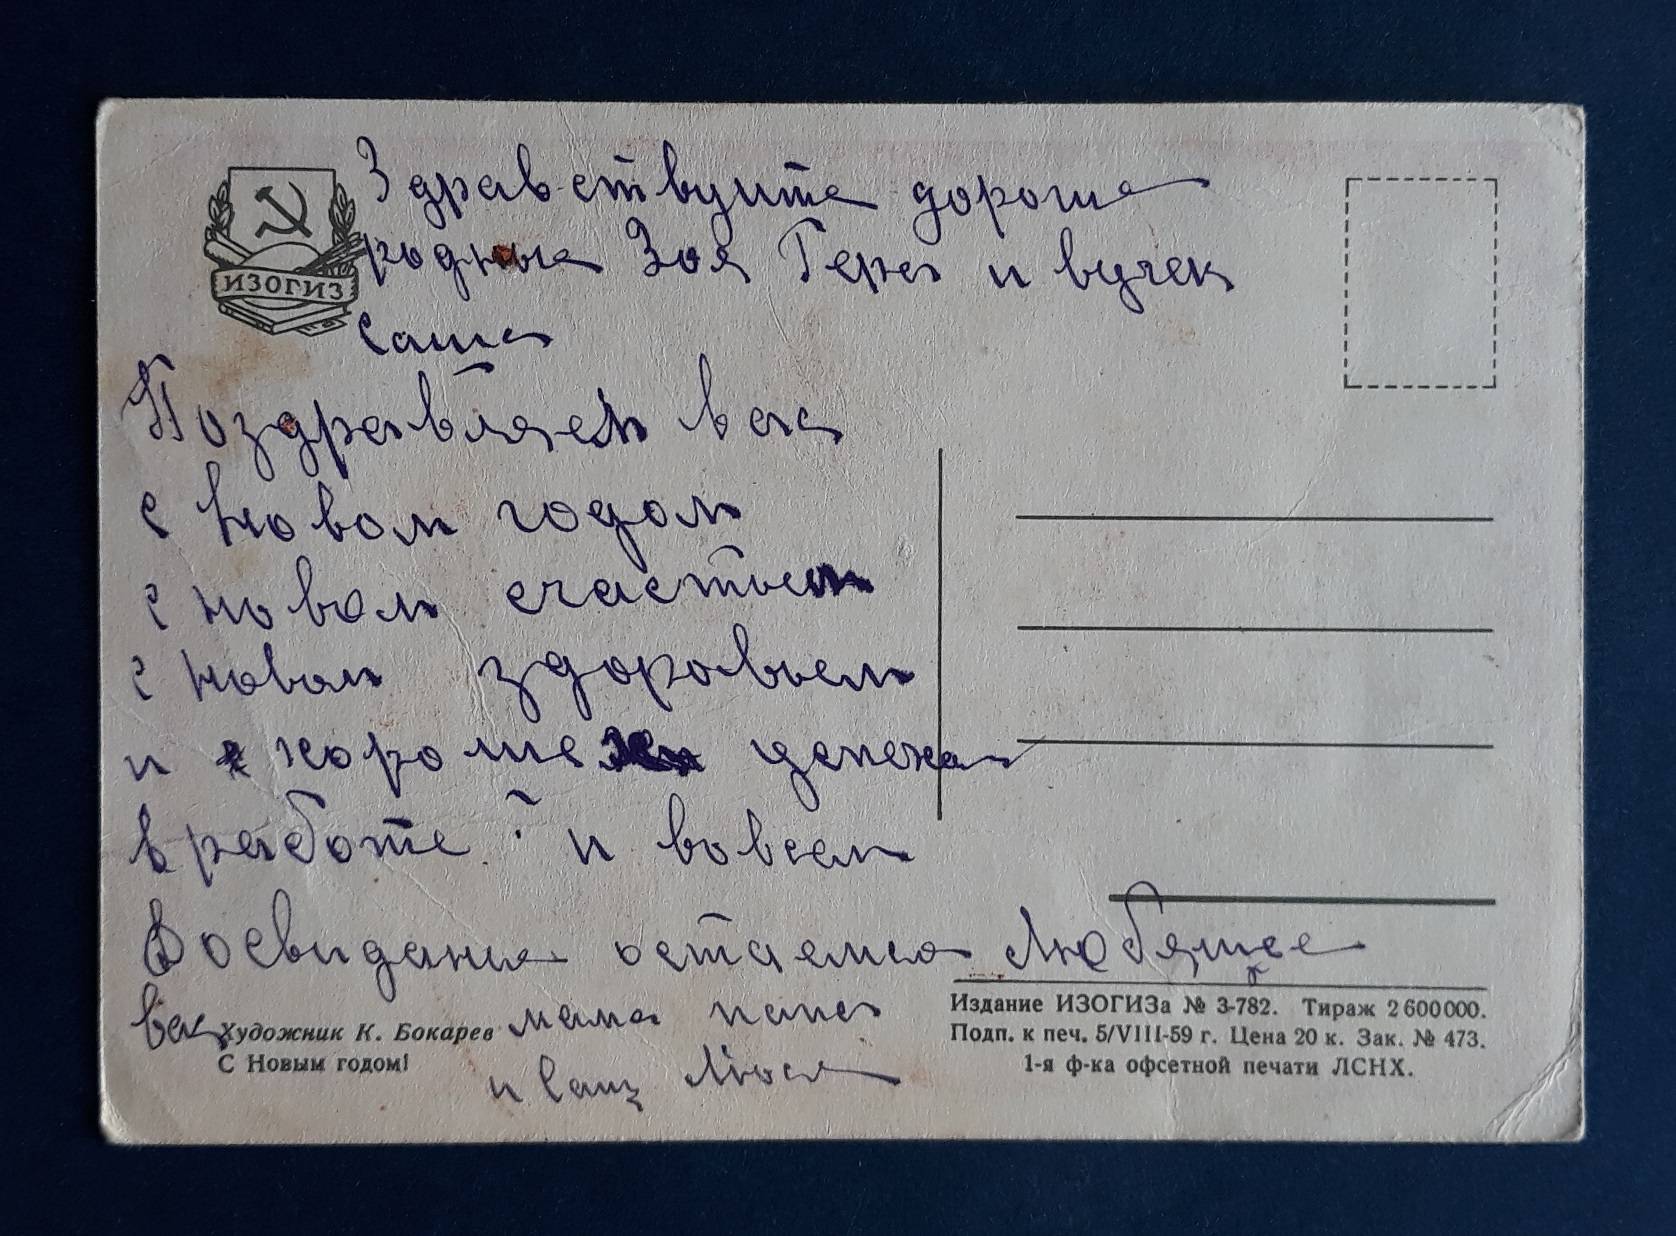 ИЗОГИЗ
Здравствуите дорогие
родные Зоя Гера и вучек
Саша
Поздравляем вас
с новом годом
с новом счастьем
с новом здоровьем
и хороше
в работе и вовсем
Восвидания остаемса Любящее
вас мама папа
и Люся
Художник К. Бокарев
С Новым годом!
Издание ИЗОГИЗа № 3-782. Тираж 2 600 000.
Подп. к печ. 5/VIII-59 г. Цена 20 к. Зак. № 473.
1-я ф-ка офсетной печати ЛСНХ.